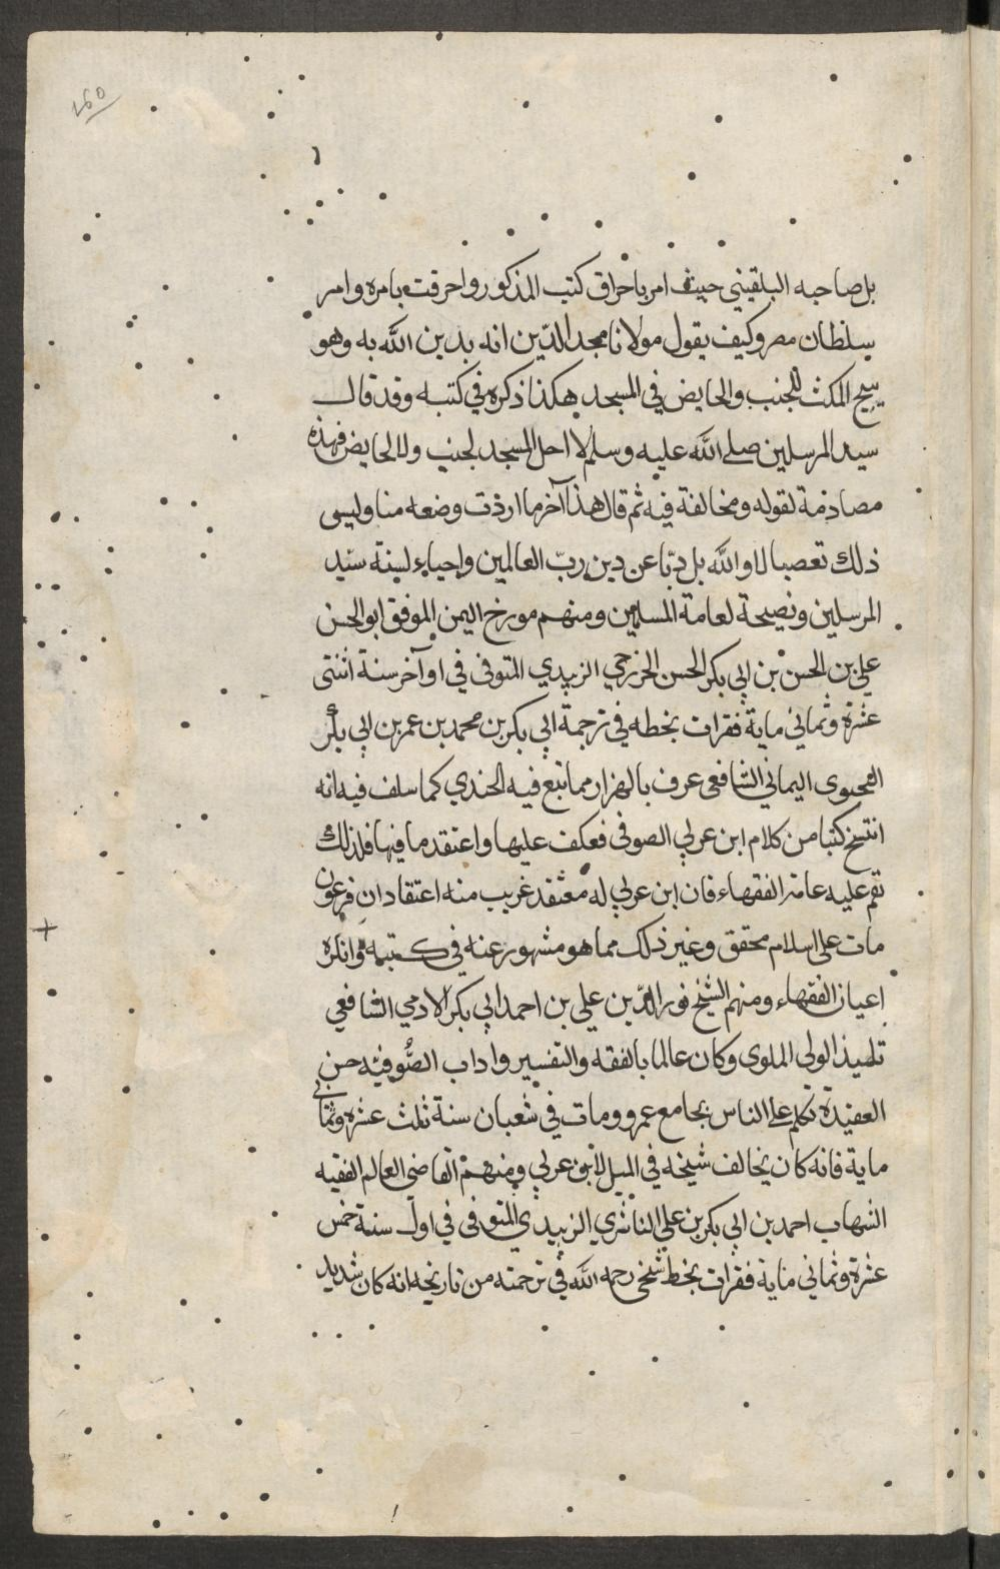 ١٤٥
بل صاحبه البلقيني حيث امر باحراق كتب المذكور واحرقت بامره وامر
سلطان مصر وكيف يقول مولانا مجد الدّين انه يدين الله به وهو
يبيح المكث للجنب والحايض في المسجد هكذا ذكره في كتبه وقد قال
سيد المرسلين صلى الله عليه وسلم لا احل المسجد لجنب ولا لحايض فهذه
مصادمة لقوله ومخالفة فيه ثم قال هذا آخر ما اردت وضعه منا وليس
ذلك تعصبا لا والله بل ذبّا عن دين ربّ العالمين واحياء لسنة سيّد
المرسلين ونصيحة لعامة المسلمين ومنهم مورخ اليمن الموفق ابو الحسن
علي بن الحسن بن ابي بكر الحسن الخزرجي الزبيدي المتوفى في اواخر سنة اثنتى
عشرة وثماني ماية فقرات بخطه في ترجمة ابي بكر بن محمد بن عمر بن ابي بكر
اليماني الشافعي عرف بالهزار مما تبع فيه الجندي كما سلف فيه انه
انتسخ كتبا من كلام ابن عربي الصوفى فعكف عليها واعتقد ما فيها فلذلك
نقم عليه عامة الفقهاء فان ابن عربي له معتقد غريب منه اعتقاد ان فرعون
مات على اسلام محقق وغير ذلك مما هو مشهور عنه في كتبه وانكره
اعيان الفقهاء ومنهم الشيخ نور الدّين علي بن احمد ابي بكر الادمي الشافعي
تلميذ الولى الملوى وكان عالما بالفقه والتفسير واداب الصُّوفيّه حسن
العقيدة تكلم على الناس بجامع عمرو ومات في شعبان سنة ثلث عشرة وثماني
ماية فانه كان يخالف شيخه في الميل لابن عربي ومنهم القاضى العالم الفقيه
الشهاب احمد بن ابي بكر بن علي الناشري الزبيدي المتوفى في اول سنة خمس
عشرة وثماني ماية فقرات بخط شيخي رحمه الله في ترجمته من تاريخه انه كان شديد